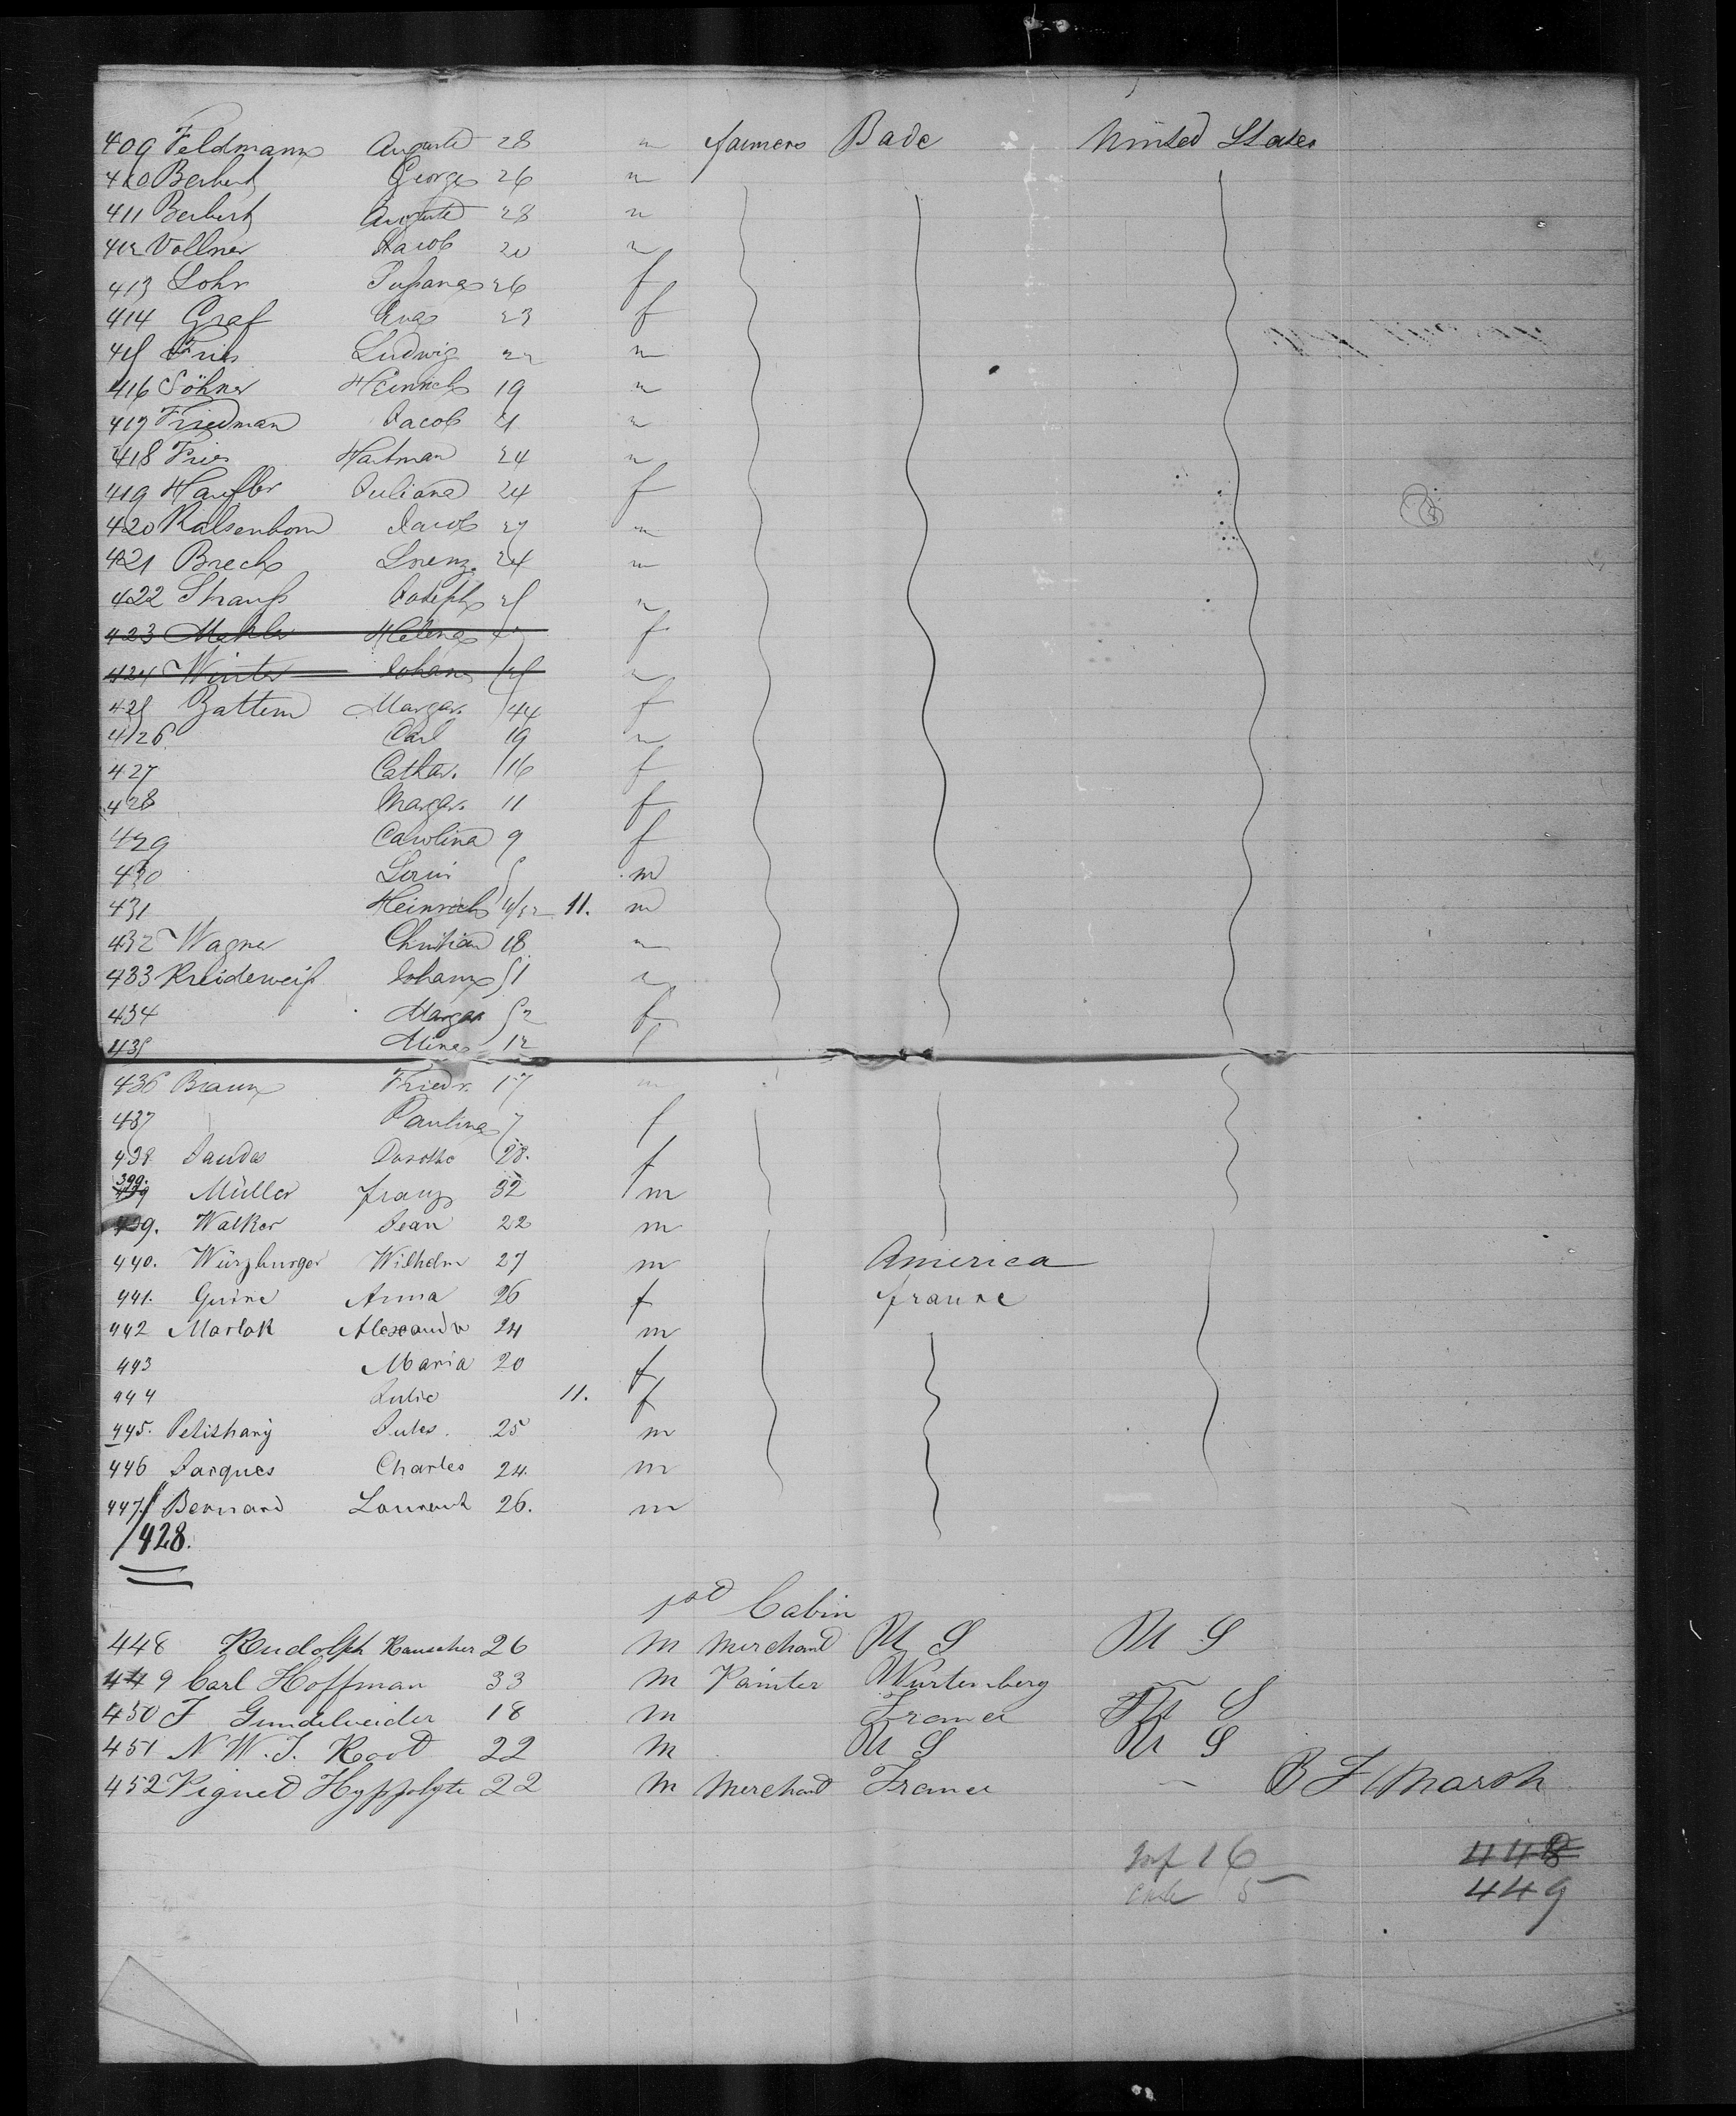 409 Feldmann August 28 m farmers Bade United States
410 Berbert George 26 m
411 Berbert August 28 m
412 Vollmer Jacob 20 m
413 Lohr Susana 26 f
414 Graf Eva 23 f
415 Fries Ludwig 22 m
416 Söhner Heinrich 19 m
417 Friedman Jacob 21 m
418 Fries Hartman 24 m
419 Haufler Juliana 24 f
420 Jacob 27 m
421 Brech Lorenz 24 m
422 Strauß Joseph 25 m
423 Helena f
424 Winter Johan m
425 Margar. 44 f
426 Carl 19 m
427 Cathar. 16 f
428 Margar. 11 f
429 Carolina 9 f
430 5 m
431 Heinrich 11. m
432 Wagner Christian 18 m
433 Kreideweiß Johann 51 m
434 Margar 52 f
435 Mina 12 f
436 Braun Friedr. 17 m
437 Paulina 7 f
438 Dorothe 28. f
399. Müller Franz 32 m
439. Walker Jean 22 m
440. Würzburger Wilhelm 27 m America
441. Anna 26 f france
442 Marlak Alexandre 24 m
443 Maria 20 f
444 Julie 11. f
445. Jules. 25 m
446 Jacques Charles 24. m
447. Bernard Laurent 26. m
428.
1st Cabin
448 Rudolph Rauscher 26 m Merchand U S U S
449 Carl Hoffman 33 m Painter Wurtemberg
450 J 18 m France U S
451 N. W. J. Root 22 m U S U S
452 Pignet Hyppolyte 22 m Merchand France — B F Marsh
Inf 16 448
Cab 5 449